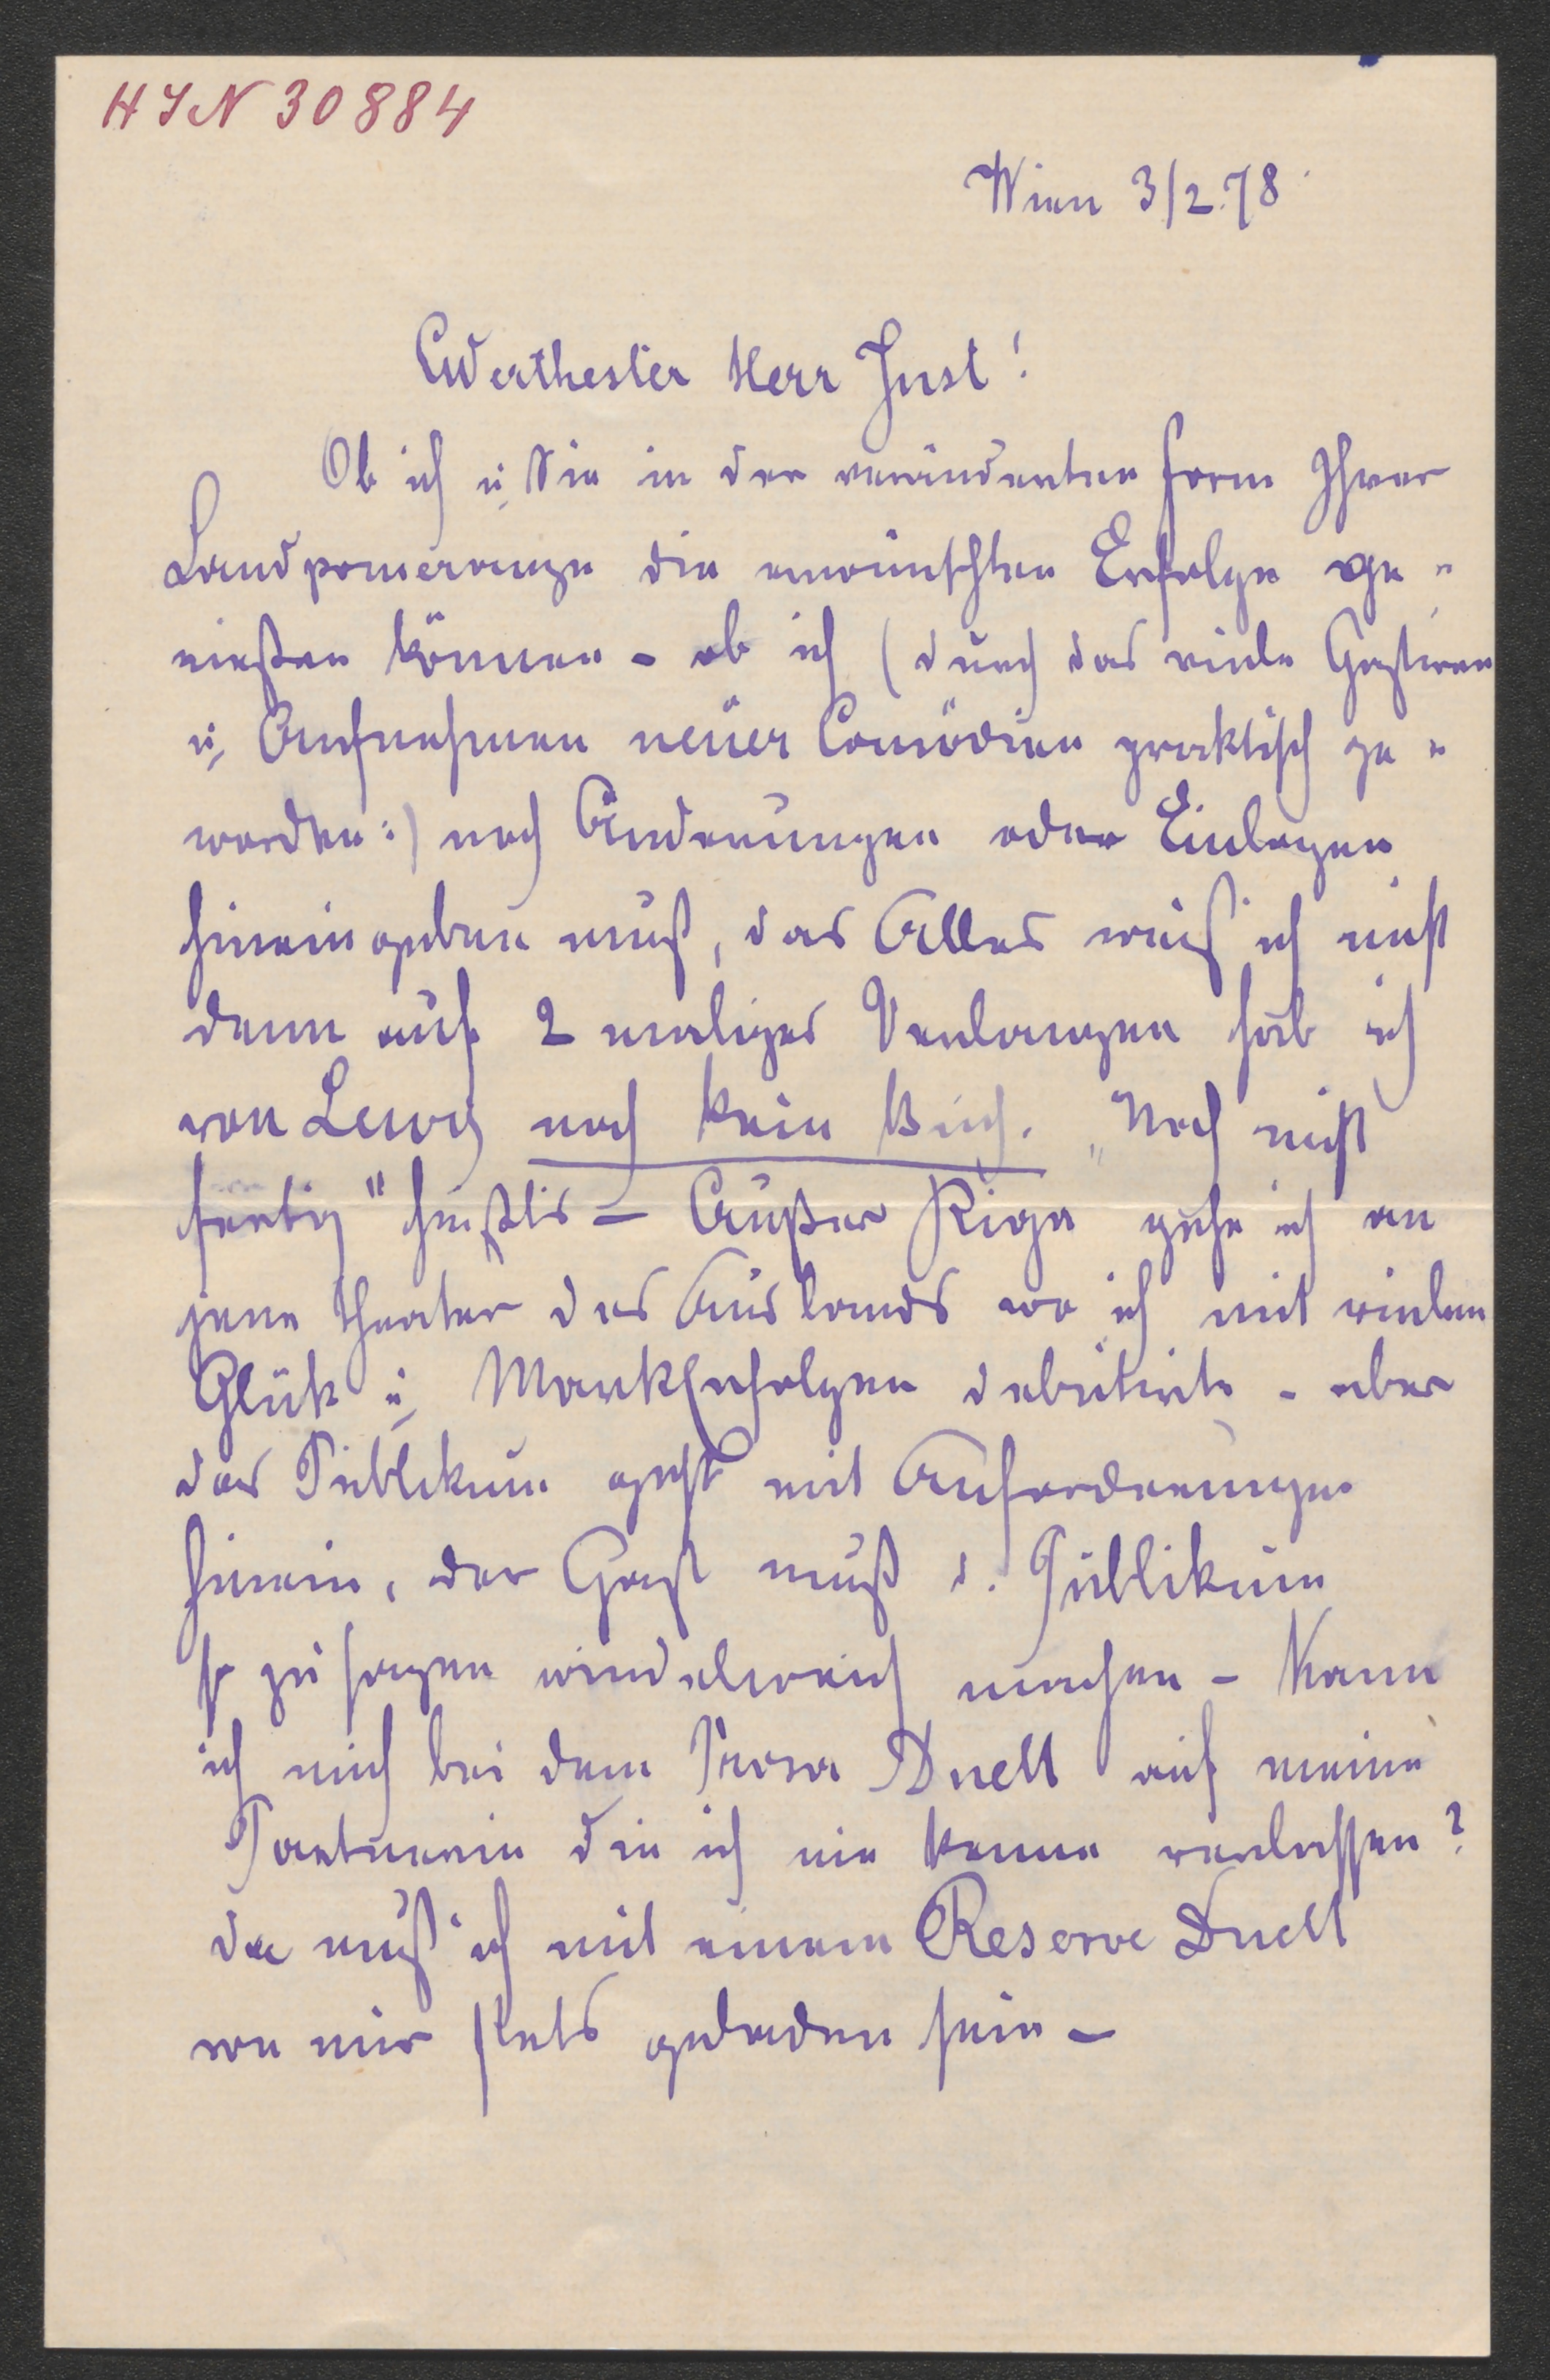 HIN 30884
Wien 3/2.78.
Werthester Herr Just!
Ob ich u Sie in der veränderten Form Ihrer
Landpomeranze die erwünschten Erfolge ge-
nießen können - ob ich (durch das viele Gastiren
u Aufnehmen neuer Comödien praktisch ge-
worden:) noch Änderungen oder Einlagen
hineingeben muß, das Alles weiß ich nicht
denn auf 2 maliges Verlangen hab ich
von Lewy noch kein Buch. „Noch nicht
fertig" heißt's - Außer Riga gehe ich an
jene Theater des Auslands wo ich mit vielem
Glück u Markerfolgen debutirte - aber
das Publikum geht mit Anforderungen
hinein, der Gast muß d. Publikum
so zu sagen windelweich machen - Kann
ich mich bei dem Prosa Duett auf meine
Partnerin die ich nie kenne verlassen?
da muß ich mit einem Reserve Duett
von mir stets geladen sein -